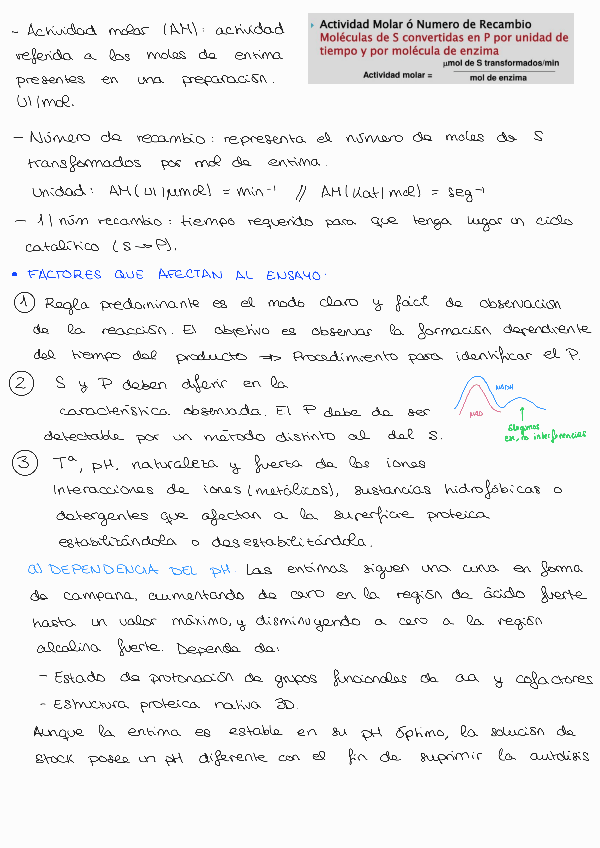 - Actividad molar (AM): actividad
referida a los moles de enzima
presentes en una preparación.
UI/mol.
Actividad Molar ó Numero de Recambio
Moléculas de S convertidas en P por unidad de
tiempo y por molécula de enzima
Actividad molar = μmol de S transformados/min
mol de enzima
- Número de recambio: representa el número de moles de S
transformados por mol de enzima.
Unidad: AM(UI/μmol) = min⁻¹ // AM(Kat/mol) = seg⁻¹
- 1/núm recambio: tiempo requerido para que tenga lugar un ciclo
catalítico (S→P).
• FACTORES QUE AFECTAN AL ENSAYO.
① Regla predominante es el modo claro y fácil de observación
de la reacción. El objetivo es observar la formación dependiente
del tiempo del producto ⇒ Procedimiento para identificar el P.
② S y P deben diferir en la
característica observada. El P debe de ser
detectable por un método distinto al del S.
NADH
NAD
Elegimos
ex, no interferencias
③ Tª, pH, naturaleza y fuerza de los iones
Interacciones de iones (metálicos), sustancias hidrofóbicas o
detergentes que afectan a la superficie proteica
estabilizándola o desestabilizándola.
a) DEPENDENCIA DEL pH. Las enzimas siguen una curva en forma
de campana, aumentando de cero en la región de ácido fuerte
hasta un valor máximo, y disminuyendo a cero a la región
alcalina fuerte. Depende de:
- Estado de protonación de grupos funcionales de aa y cofactores
- Estructura proteica nativa 3D.
Aunque la enzima es estable en su pH óptimo, la solución de
stock posee un pH diferente con el fin de suprimir la autolisis